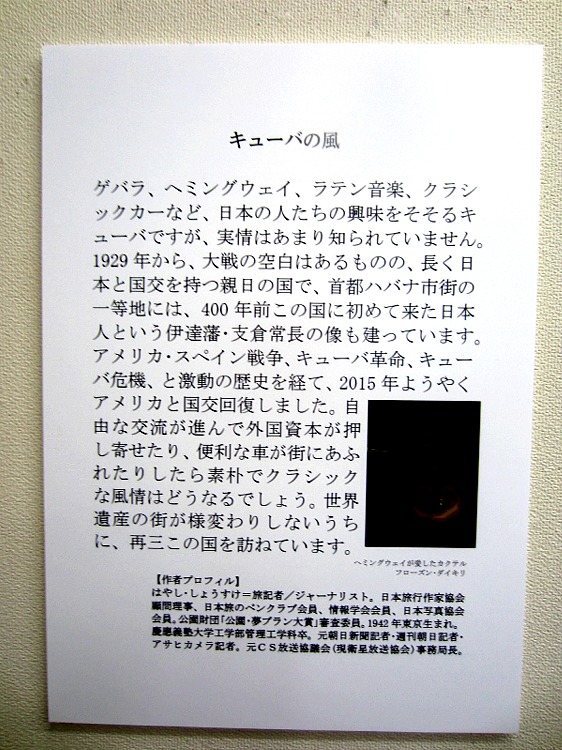 キューバの風
ゲバラ、ヘミングウェイ、ラテン音楽、クラシ
ックカーなど、日本の人たちの興味をそそるキ
ューバですが、実情はあまり知られていません。
1929 年から、大戦の空白はあるものの、長く日
本と国交を持つ親日の国で、首都ハバナ市街の
一等地には、400 年前この国に初めて来た日本
人という伊達藩・支倉常長の像も建っています。
アメリカ・スペイン戦争、キューバ革命、キュー
バ危機、と激動の歴史を経て、2015 年ようやく
アメリカと国交回復しました。自
由な交流が進んで外国資本が押
し寄せたり、便利な車が街にあふ
れたりしたら素朴でクラシック
な風情はどうなるでしょう。世界
遺産の街が様変わりしないうち
に、再三この国を訪ねています。
ヘミングウェイが愛したカクテル
フローズン・ダイキリ
【作者プロフィル】
はやし・しょうすけ＝旅記者／ジャーナリスト。日本旅行作家協会
顧問理事、日本旅のペンクラブ会員、情報学会会員、日本写真協会
会員。公園財団「公園・夢プラン大賞」審査委員。1942 年東京生まれ。
慶應義塾大学工学部管理工学科卒。元朝日新聞記者・週刊朝日記者・
アサヒカメラ記者。元ＣＳ放送協議会（現衛星放送協会）事務局長。